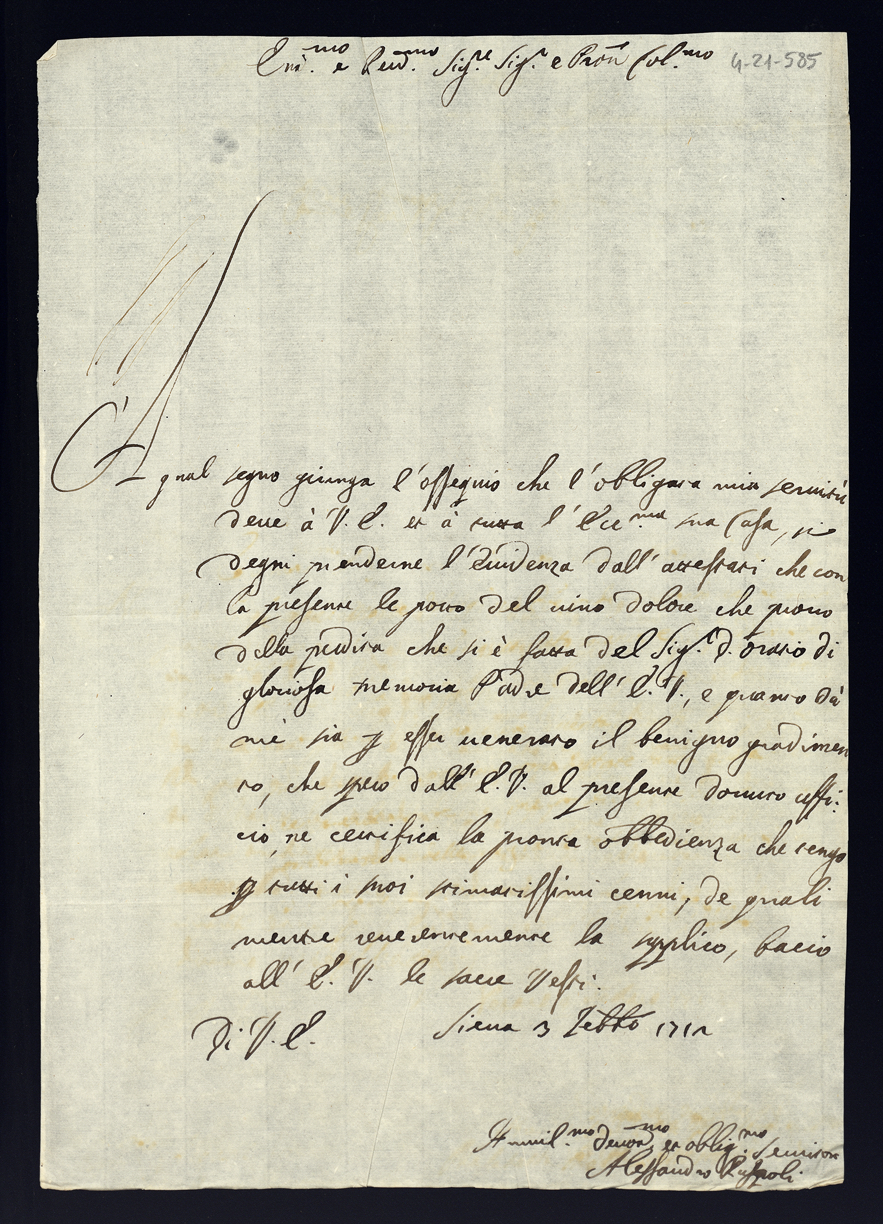 Em.mo e Reud.mo Sig.re Sig.r e Pron Col.mo
4-21-585
A qual segno giunga l'ossequio che l'obligata mia seruitù
deue à V. E. et à tutta l'Ecc.ma sua Casa, si
degni prenderne l'euidenza dall'attestati che con
la presente le porto del uiuo dolore che prouo
della perdita che si è fatta del Sig.r D. Oratio di
gloriosa memoria Padre dell'E. V., e quanto dà
mè sia p esser uenerato il benigno gradimen
to, che spero dall'E. V. al presente douuto uffi:
cio, ne certifica la pronta obbedienza che tengo
p tutti i suoi stimatissimi cenni, de quali
mentre reuerentemente la supplico, bacio
all'E. V. le sacre Vesti.
Di V. E. Siena 3 Febbro 1712
Humil.mo Deuot.mo et oblig.mo Seruitore
Alessandro Ruspoli